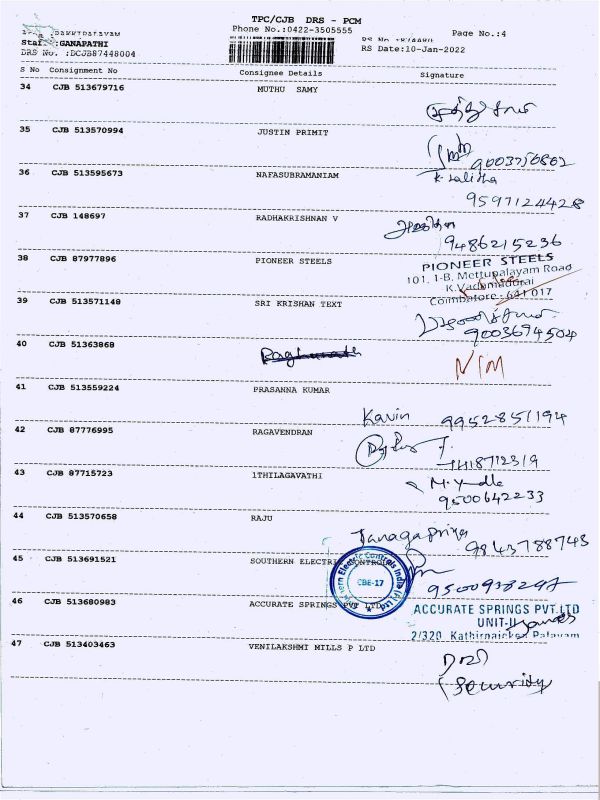 TPC/CJB DRS - PCM
Phone No.:0422-3505555
Page No.:4
Staff :GANAPATHI
DRS No. :DCJB87448004
RS Date:10-Jan-2022
S No Consignment No Consignee Details Signature
34 CJB 513679716 MUTHU SAMY
35 CJB 513570994 JUSTIN PRIMIT
9003756862
36 CJB 513595673 NAFASUBRAMANIAM K. Lalitha
9597124428
37 CJB 148697 RADHAKRISHNAN V
9486215236
38 CJB 87977896 PIONEER STEELS PIONEER STEELS
101, 1-B, Mettupalayam Road
K.Vadamadurai
Coimbatore - 641 017
39 CJB 513571148 SRI KRISHAN TEXT
9003694504
40 CJB 51363868 Raghunath
41 CJB 513559224 PRASANNA KUMAR
Kavin 9952851194
42 CJB 87776995 RAGAVENDRAN
43 CJB 87715723 1THILAGAVATHI
9500642233
44 CJB 513570658 RAJU
9843788743
45 CJB 513691521 SOUTHERN ELECTRIC CONTROLS
CBE-17
46 CJB 513680983 ACCURATE SPRINGS PVT LTD
ACCURATE SPRINGS PVT.LTD
UNIT-II
2/320, Kathirnaicken Palayam
47 CJB 513403463 VENILAKSHMI MILLS P LTD
Security